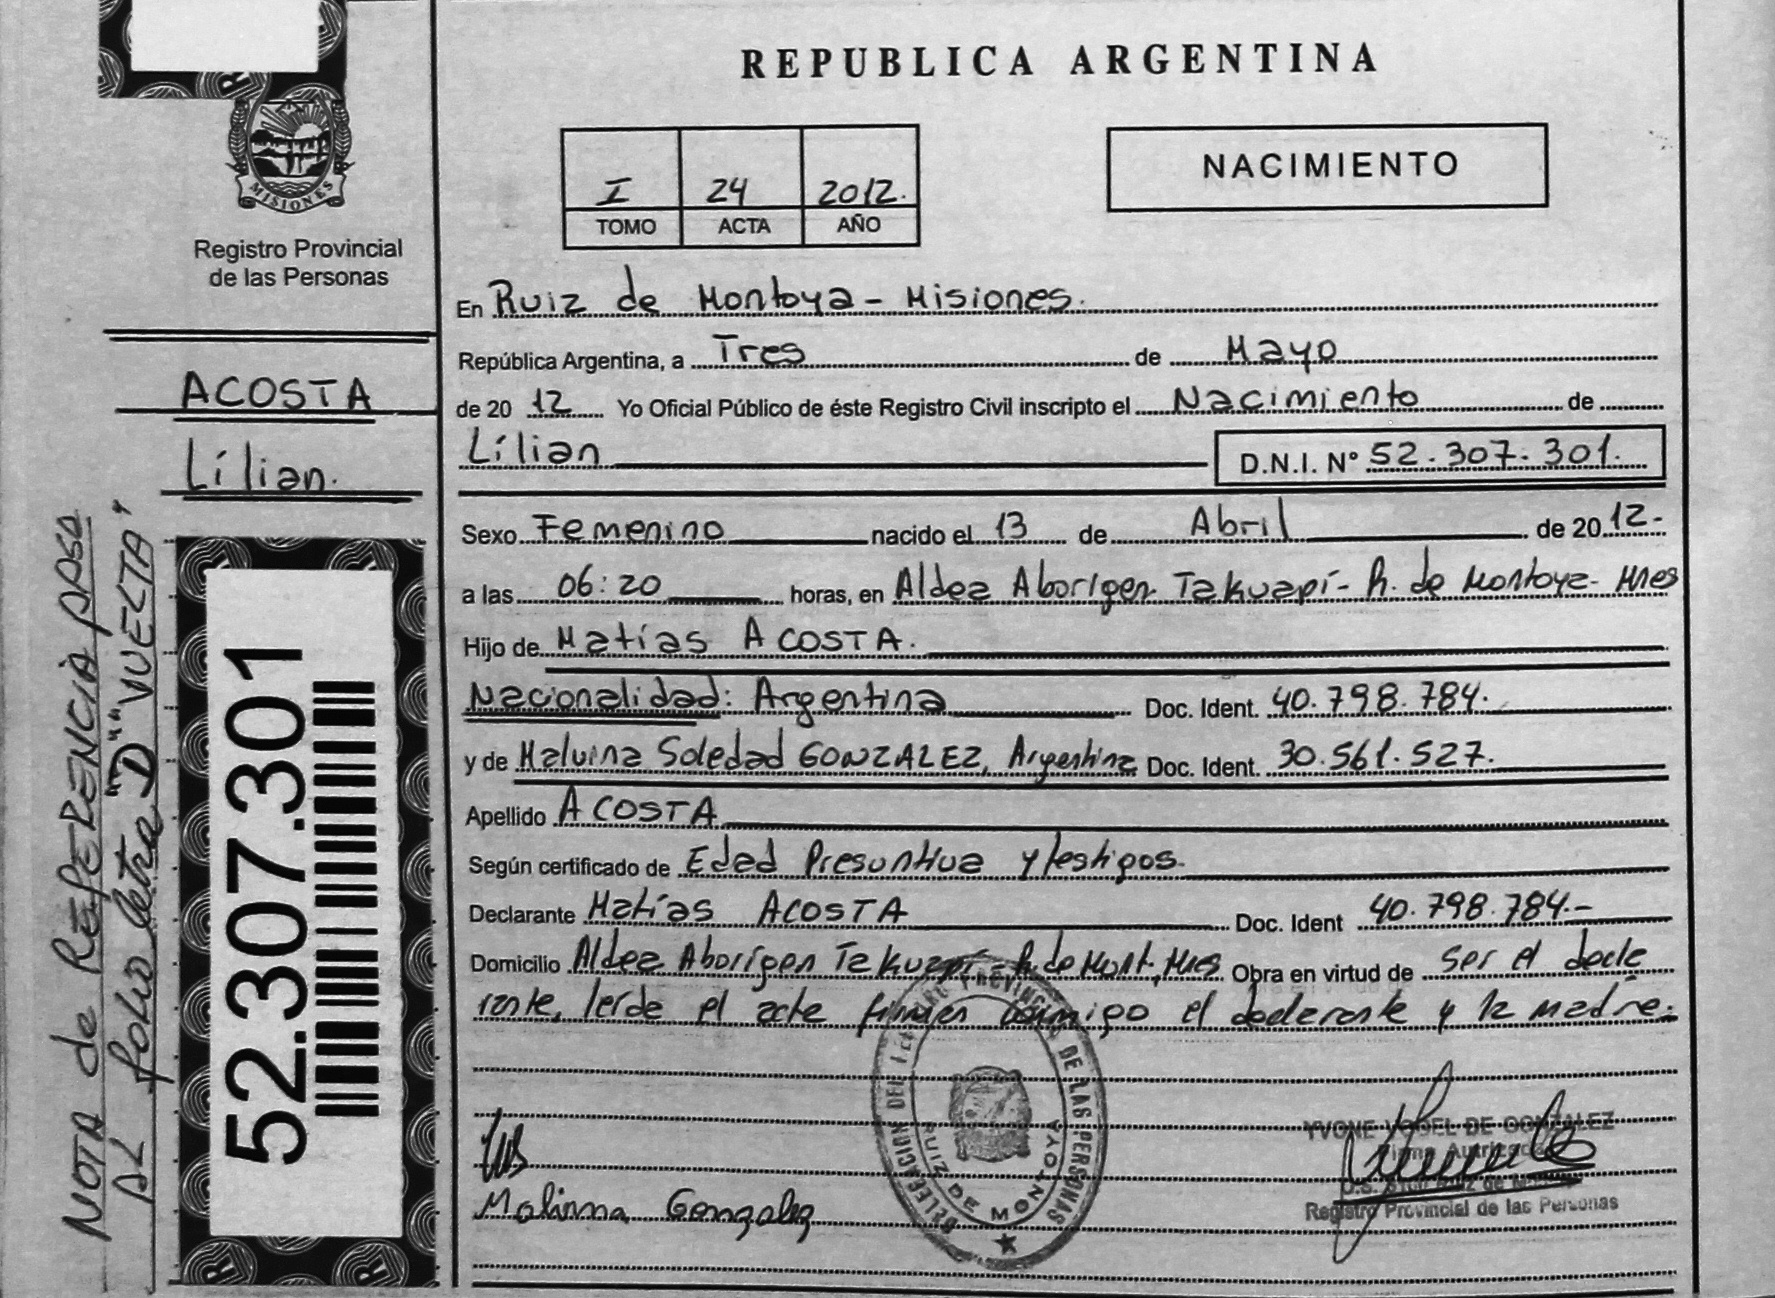 REPUBLICA ARGENTINA
MISIONES
Registro Provincial
de las Personas
I 24 2012.
TOMO ACTA AÑO
NACIMIENTO
ACOSTA
Lílian.
NOTA de REFERENCIA pasa
AL folio letra "D" "VUELTA"
52.307.301
En Ruiz de Montoya - Misiones.
República Argentina, a Tres de Mayo
de 2012 Yo Oficial Público de éste Registro Civil inscripto el Nacimiento de
Lílian D.N.I. N° 52.307.301.
Sexo Femenino nacido el 13 de Abril de 2012-
a las 06:20 horas, en Aldea Aborigen Takuapí - R. de Montoya - Mnes
Hijo de Matías ACOSTA.
Nacionalidad: Argentina Doc. Ident. 40.798.784.
y de Malvina Soledad GONZALEZ, Argentina Doc. Ident. 30.561.527.
Apellido ACOSTA
Según certificado de Edad Presuntiva y testigos.
Declarante Matías ACOSTA Doc. Ident 40.798.784.-
Domicilio Aldea Aborígen Takuapí - R. de Mont, Mnes Obra en virtud de ser el decla
rante, leída el acta firman conmigo el declarante y la madre.
DELEGACION DEL PROVINCIAL DE LAS PERSONAS
RUIZ DE MONTOYA
YVONE VOGEL DE GONZALEZ
Registro Provincial de las Personas
Gonzalez